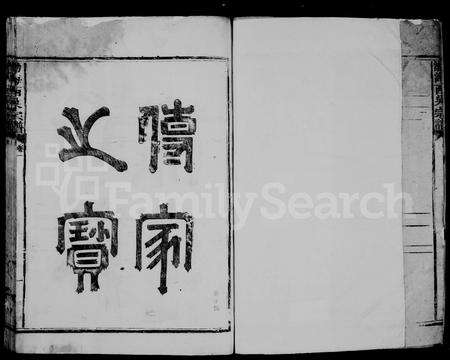 傳家
之寶
FamilySearch